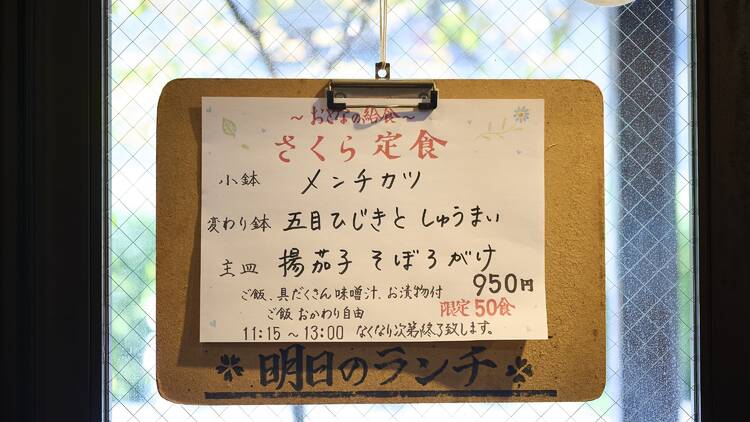 ～おとなの給食～
さくら定食
小鉢 メンチカツ
変わり鉢 五目ひじきとしゅうまい
主皿 揚茄子そぼろがけ
950円
ご飯、具だくさん味噌汁、お漬物付
限定50食
ご飯おかわり自由
11:15～13:00 なくなり次第終了致します。
明日のランチ